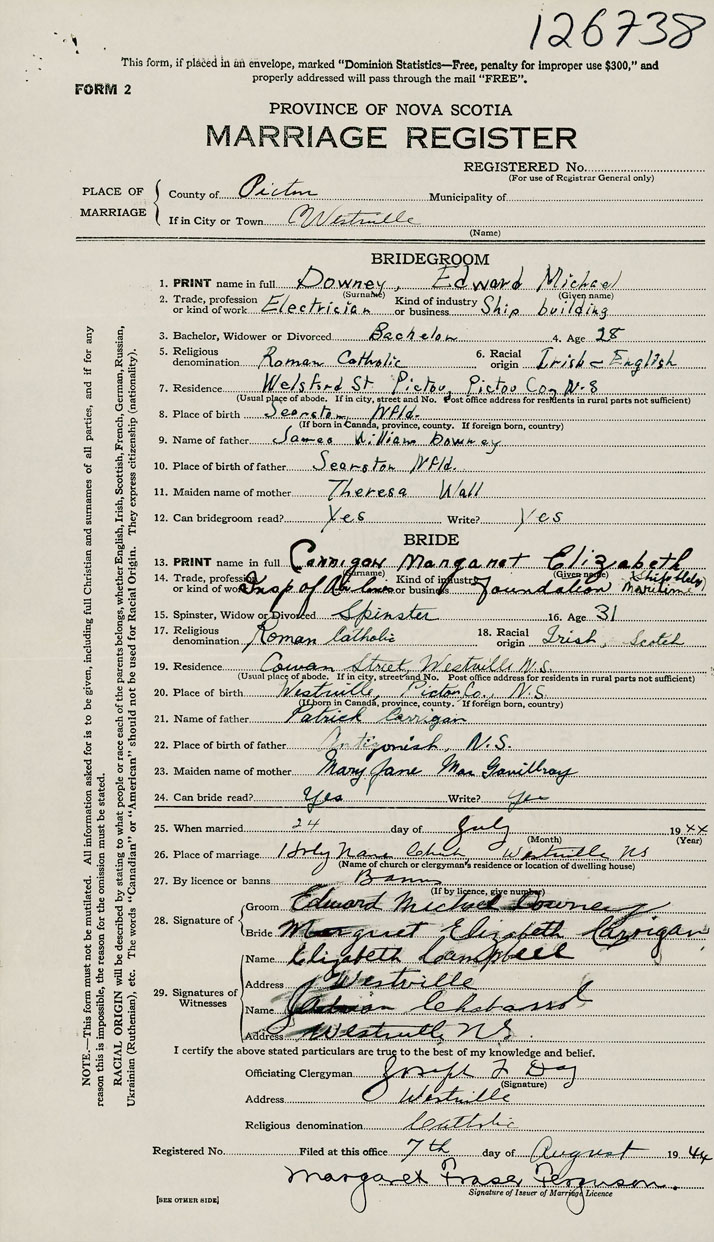 126738
This form, if placed in an envelope, marked "Dominion Statistics—Free, penalty for improper use $300," and
properly addressed will pass through the mail "FREE".
FORM 2
PROVINCE OF NOVA SCOTIA
MARRIAGE REGISTER
REGISTERED No.
(For use of Registrar General only)
PLACE OF MARRIAGE
County of Pictou Municipality of
If in City or Town Westville
(Name)
BRIDEGROOM
1. PRINT name in full Downey, Edward Michael
(Surname) (Given name)
2. Trade, profession or kind of work Electrician Kind of industry or business Ship building
3. Bachelor, Widower or Divorced Bachelor 4. Age 28
5. Religious denomination Roman Catholic 6. Racial origin Irish - English
7. Residence Welsford St Pictou, Pictou Co, N.S
(Usual place of abode. If in city, street and No. Post office address for residents in rural parts not sufficient)
8. Place of birth Searston Nfld.
(If born in Canada, province, county. If foreign born, country)
9. Name of father James William Downey
10. Place of birth of father Searston Nfld.
11. Maiden name of mother Theresa Wall
12. Can bridegroom read? Yes Write? Yes
BRIDE
13. PRINT name in full Carrigan Margaret Elizabeth
(Surname) (Given name)
14. Trade, profession or kind of work Insp of Kind of industry or business Foundation Maritime (Shipbldg)
15. Spinster, Widow or Divorced Spinster 16. Age 31
17. Religious denomination Roman Catholic 18. Racial origin Irish, Scotch
19. Residence Cowan Street, Westville N.S.
(Usual place of abode. If in city, street and No. Post office address for residents in rural parts not sufficient)
20. Place of birth Westville, Pictou Co., N.S.
(If born in Canada, province, county. If foreign born, country)
21. Name of father Patrick Carrigan
22. Place of birth of father Antigonish, N.S.
23. Maiden name of mother Mary Jane Mac
24. Can bride read? Yes Write? Yes
25. When married 24 day of July 19 XX
(Month) (Year)
26. Place of marriage Holy Name Church Westville NS
(Name of church or clergyman's residence or location of dwelling house)
27. By licence or banns Banns
(If by licence, give number)
28. Signature of
Groom Edward Michael Downey
Bride Margaret Elizabeth Carrigan
29. Signatures of Witnesses
Name Elizabeth Campbell
Address Westville
Name
Address Westville, NS.
I certify the above stated particulars are true to the best of my knowledge and belief.
Officiating Clergyman Joseph F Day
(Signature)
Address Westville
Religious denomination Catholic
Registered No. Filed at this office 7th day of August 19 44
Margaret Fraser Ferguson.
Signature of Issuer of Marriage Licence
[SEE OTHER SIDE]
NOTE.—This form must not be mutilated. All information asked for is to be given, including full Christian and surnames of all parties, and if for any
reason this is impossible, the reason for the omission must be stated.
RACIAL ORIGIN will be described by stating to what people or race each of the parents belongs, whether English, Irish, Scottish, French, German, Russian,
Ukrainian (Ruthenian), etc. The words "Canadian" or "American" should not be used for Racial Origin. They express citizenship (nationality).